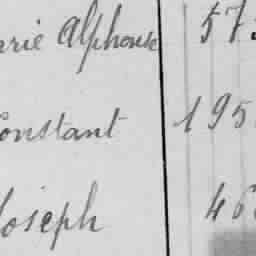 arie Alphonse 573
Constant 195
Joseph 46